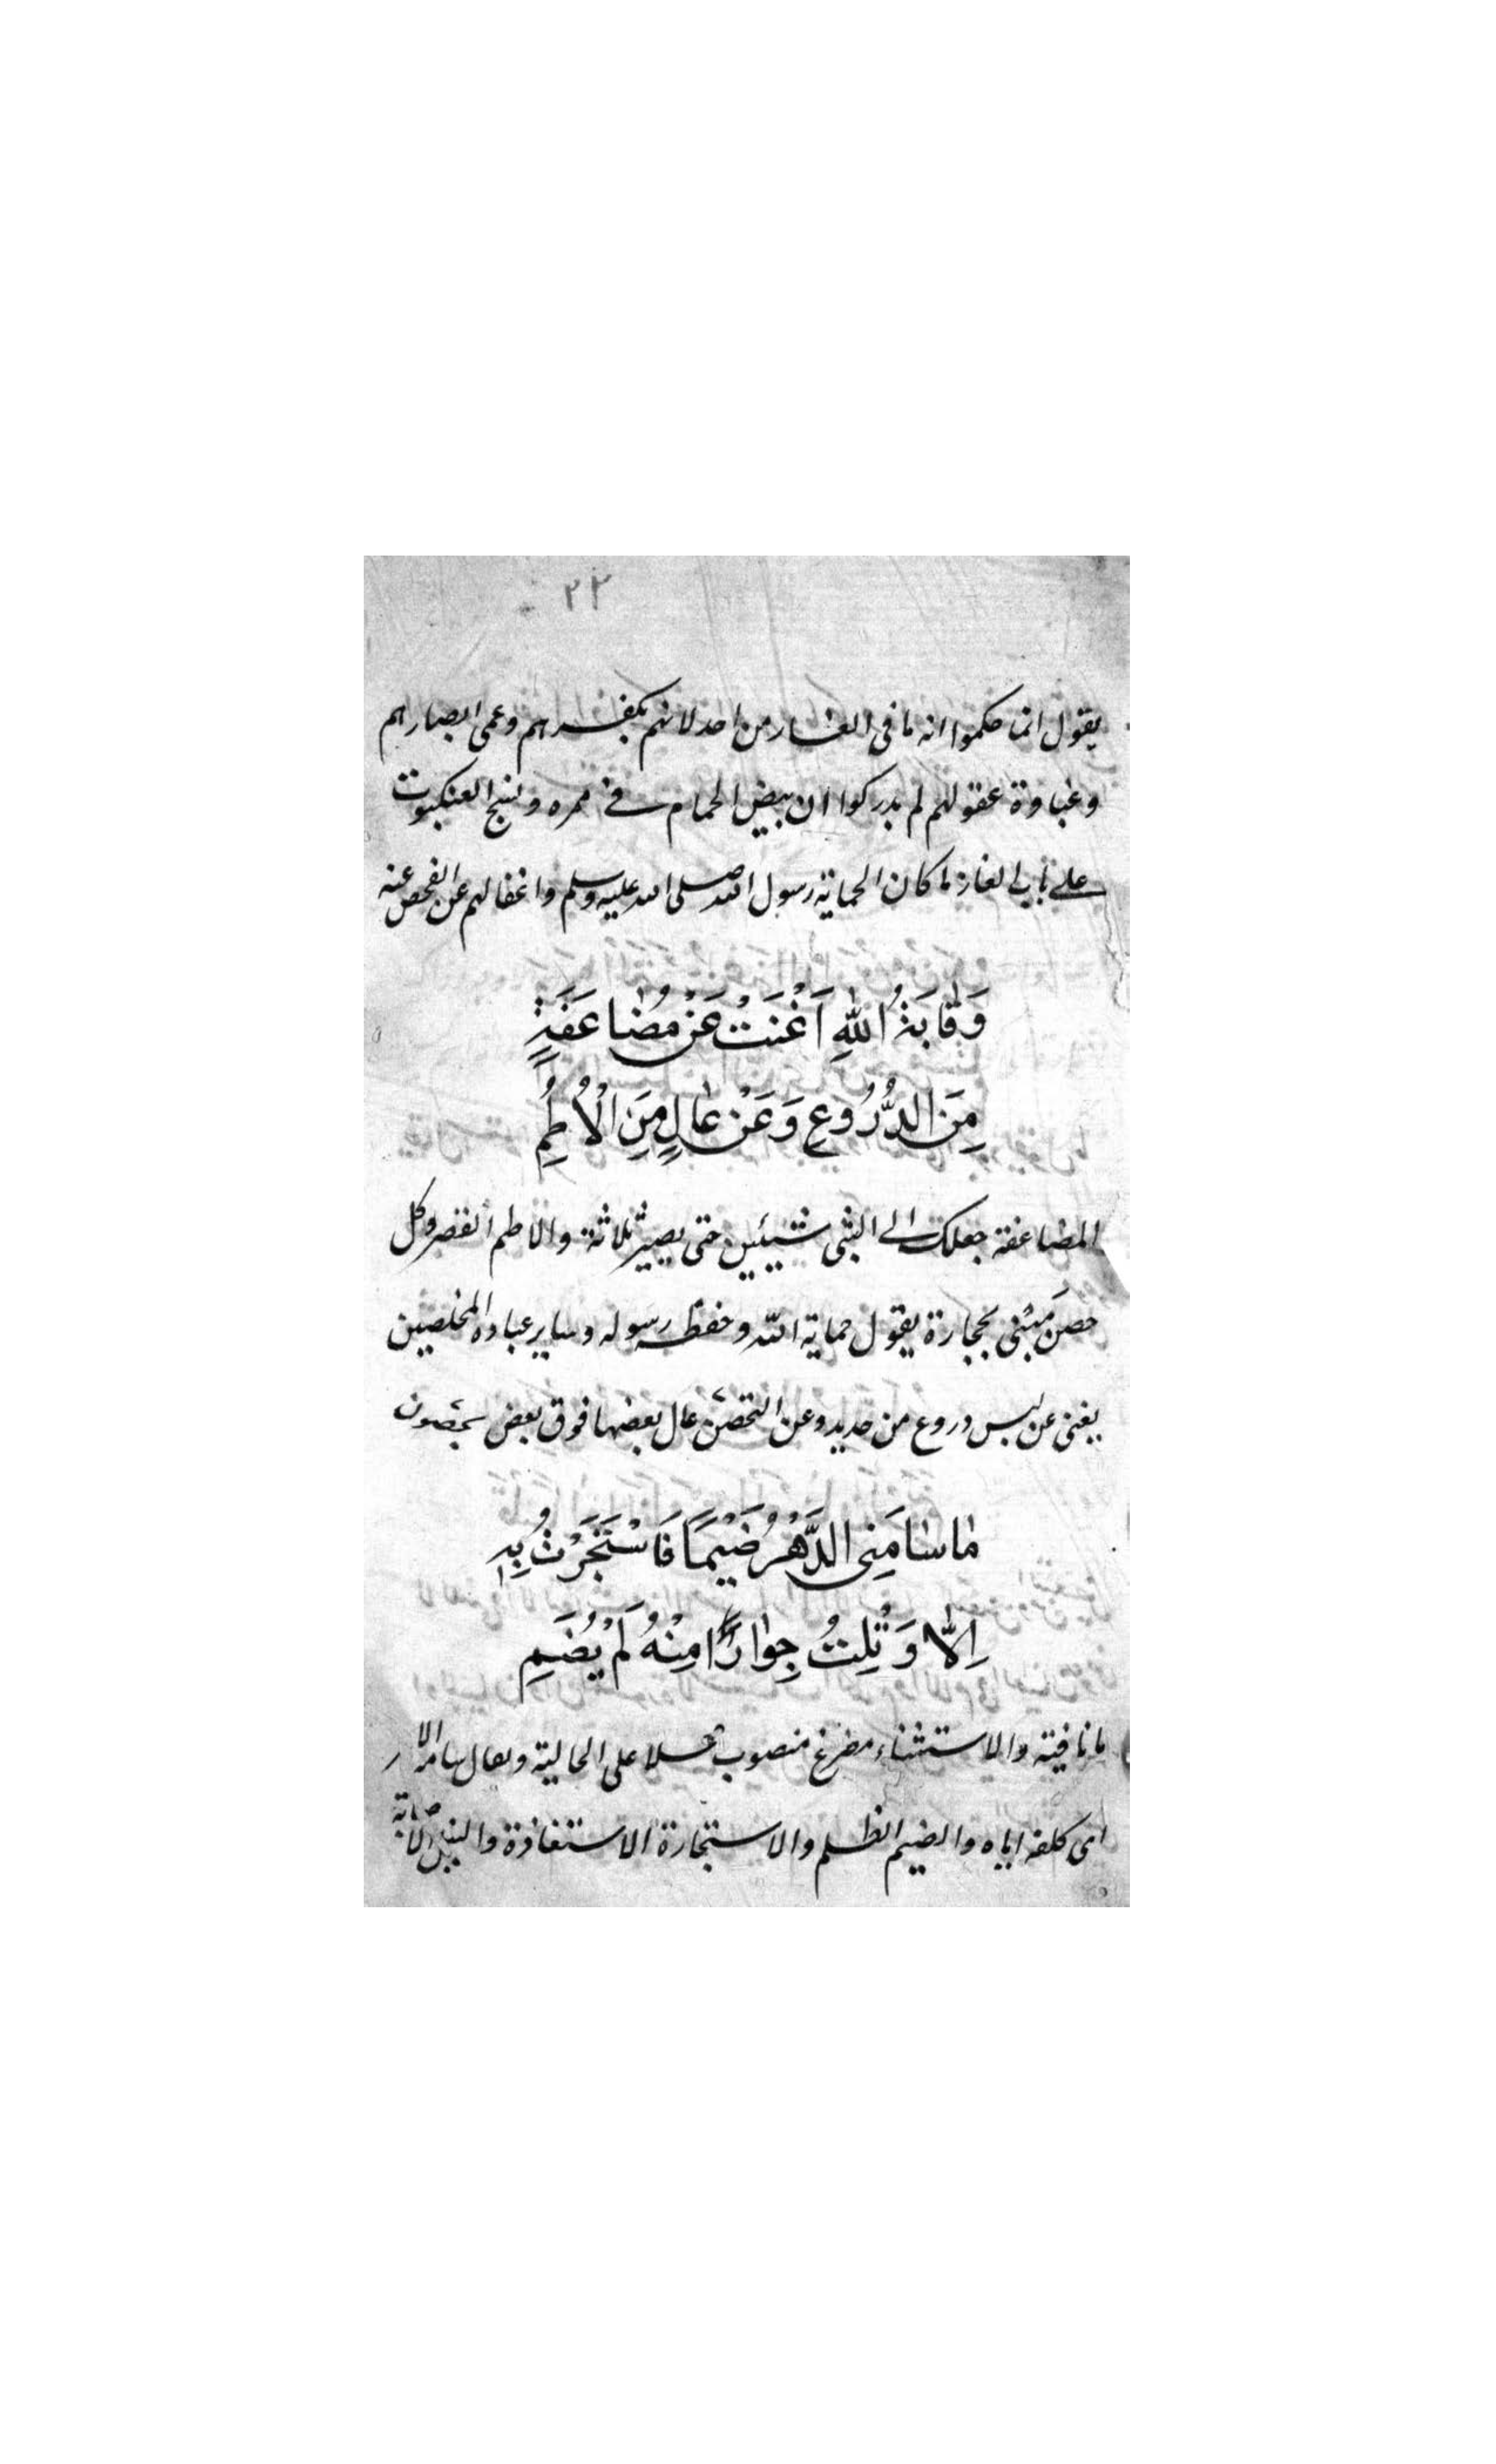 ٢٢
يقول انما حكموا انه ما فى الغار من احد لانهم بكفرهم وعمى ابصارهم
وغباوة عقولهم لم يدركوا ان بيض الحمام في ممره ونسج العنكبوت
على باب الغار ما كان الا لحماية رسول الله صلى الله عليه وسلم واغفالهم عن الفحص عنه
وَقَايَةُ اللهِ اَغْنَتْ عَنْ مُضَاعَفَةٍ
مِنَ الدُّرُوعِ وَعَنْ عَالٍ مِنَ الْاُطُمِ
المضاعفة جعلك الى الشى شيئين حتى يصير ثلاثة والاطم القصر وكل
حصن مبنى بحجارة يقول حماية الله وحفظه رسوله وساير عباده المخلصين
يغنى عن لبس دروع من حديد وعن التحصن عال بعضها فوق بعض بحصون
مَا سَامَنِى الدَّهْرُ ضَيْمًا فَاسْتَجَرْتُ بِهِ
اِلَّا وَنِلْتُ جِوَارًا مِنْهُ لَمْ يُضَمِ
ما نافية والاستثناء مفرغ منصوب محلا على الحالية ويقال سامه الامر
اى كلفه اياه والضيم الظلم والاستجارة الاستغاذة والنيل الاصابة